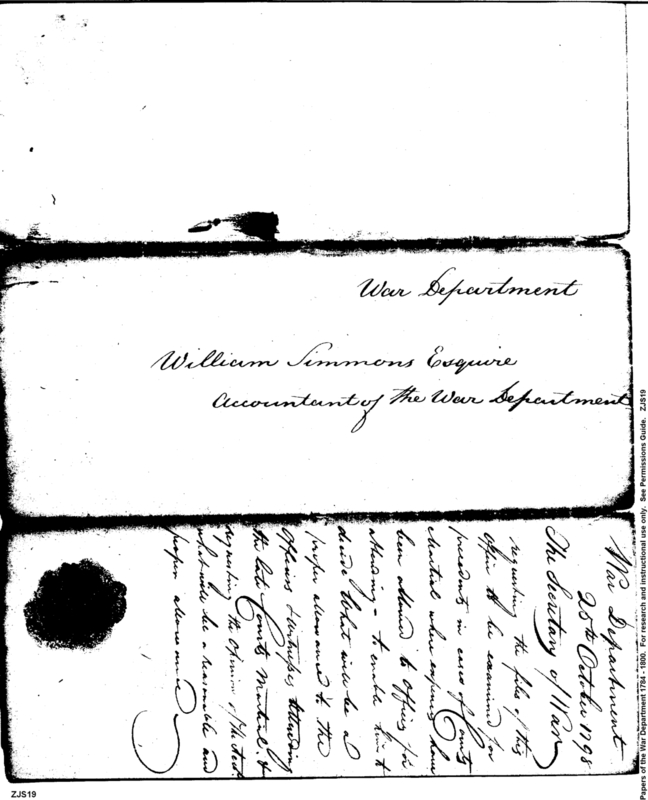 War Department
William Simmons Esquire
Accountant of the War Department
War Department
26th October 1798
The Secretary of War
requesting the files of this
office to be examined for
precedents in cases of Courts
Martial where expences have
been allowed to officers for
attending - to enable him to
decide what will be a
proper allowance to the
Officers & witnesses attending
the late Courts Martial &
requesting the opinion of the Acct.
what will be a reasonable and
proper allowance
Papers of the War Department 1784 - 1800. For research and instructional use only. See Permissions Guide. ZJS19
ZJS19